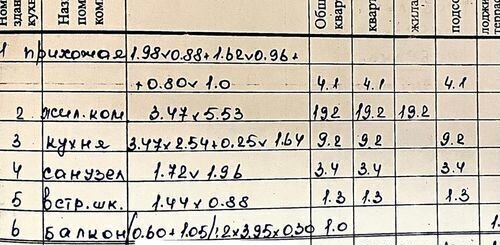 Общ
кварт
кварт
жила
подсо
лоджи
1 прихожая 1.98×0.88+1.62×0.96+
+0.80×1.0 4.1 4.1 4.1
2 жил.ком 3.47×5.53 19.2 19.2 19.2
3 кухня 3.47×2.54+0.25×1.64 9.2 9.2 9.2
4 санузел 1.72×1.96 3.4 3.4 3.4
5 встр.шк. 1.44×0.88 1.3 1.3 1.3
6 балкон (0.60+1.05)/2×3.95×0.30 1.0 1.